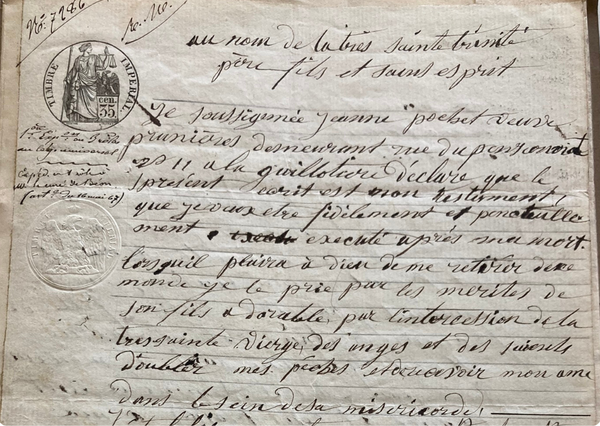 No. 7286
au nom de la très sainte trinité
père fils et saint esprit
TIMBRE IMPERIAL
CEN. 35
Je soussignée jeanne pochet veuve
prunières demeurant rue du pensionnat
no 11 a la guillotière déclare que le
présent écrit est mon testament
que je vaux etre fidèlement et ponctuelle
ment executé après ma mort
lorsquil plaira a dieu de me retirer de ce
monde je le prie par les merites de
son fils adorable par l'intercession de la
tres sainte vierge des anges et des saients
doublier mes péchés et recevoir mon ame
dans le sein de sa misericorde